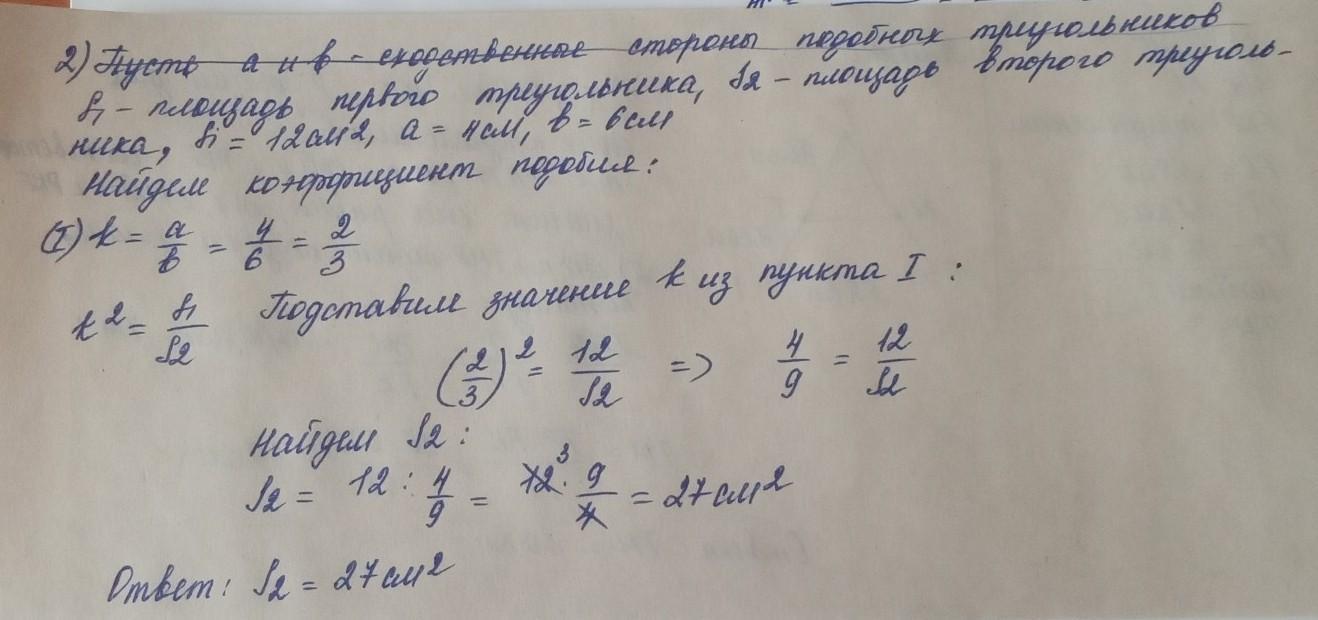 2) Пусть а и в - сходственные стороны подобных треугольников
S1 - площадь первого треугольника, S2 - площадь второго треуголь-
ника, S1 = 12см2, а = 4см, в = 6см
Найдем коэффициент подобия:
(I) k = а/в = 4/6 = 2/3
k² = S1/S2 Подставим значение k из пункта I :
(2/3)² = 12/S2 => 4/9 = 12/S2
Найдем S2 :
S2 = 12 : 4/9 = 12³ · 9/4 = 27 см²
Ответ: S2 = 27 см²